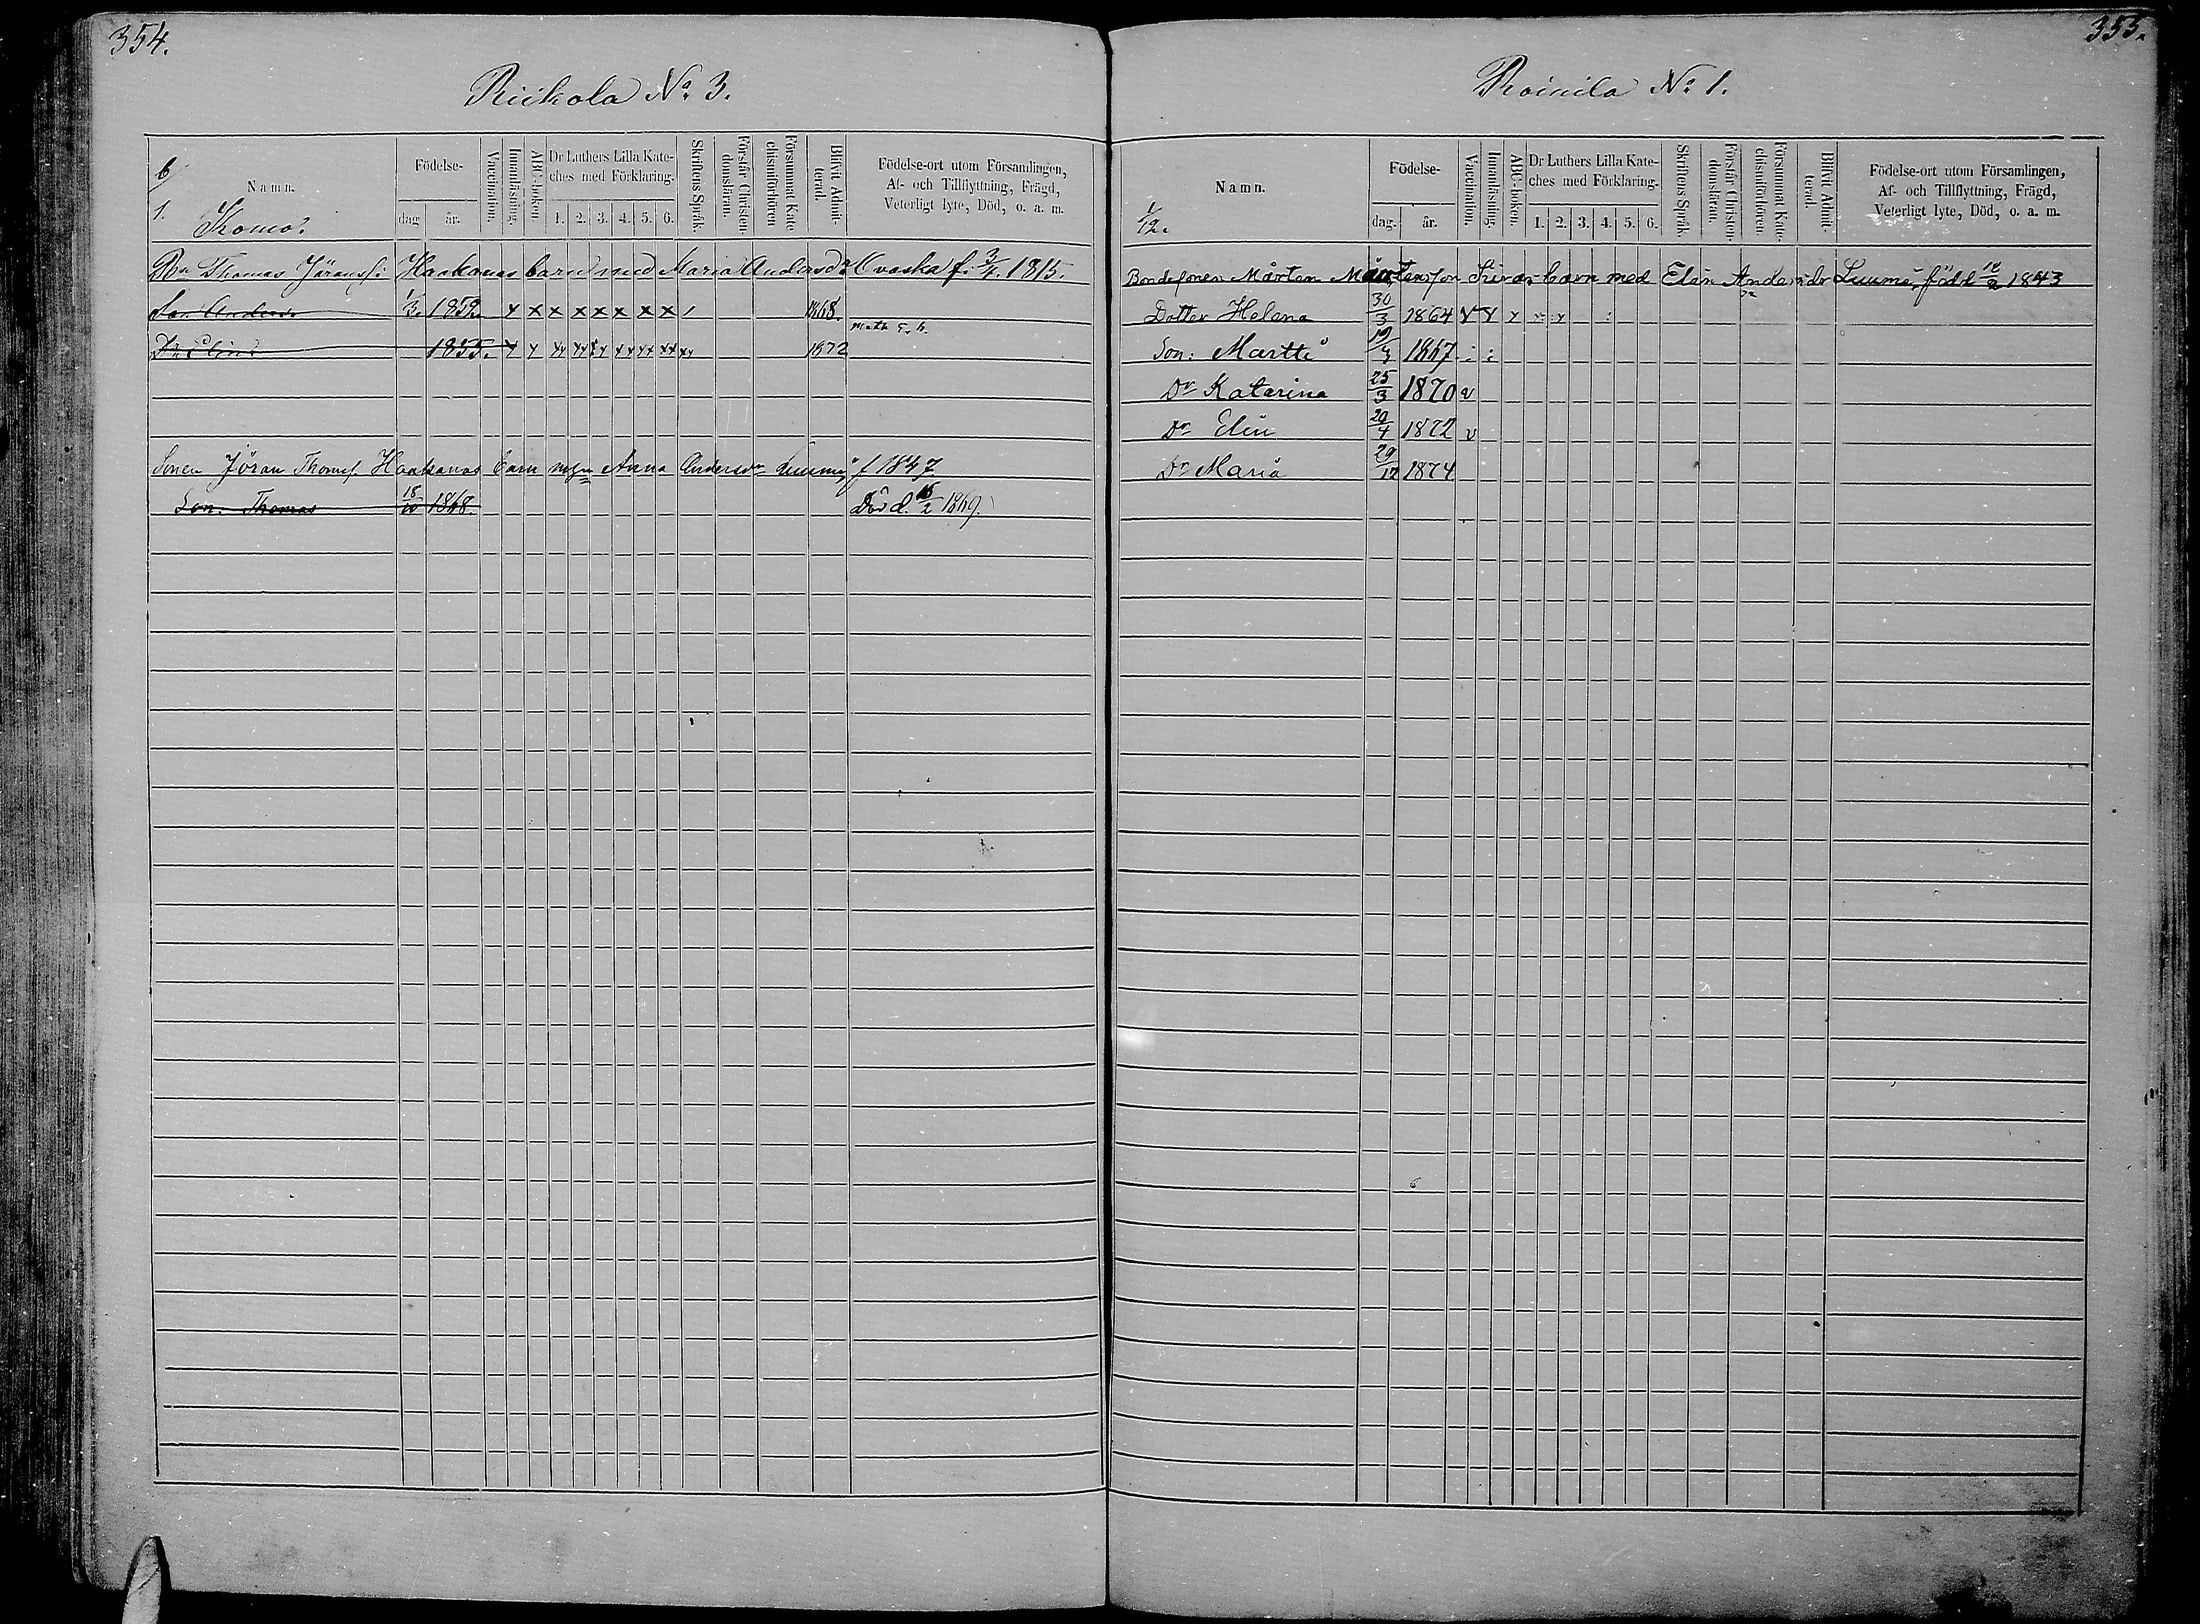 354.
Riikola No. 3.
6/1.
Namn.
Födelse-
dag
år.
Vaccination.
Innanläsning.
ABC-boken.
Dr Luthers Lilla Kate-
ches med Förklaring.
1. 2. 3. 4. 5. 6.
Skriftens Språk.
Förstår Christen-
domsläran.
Försummat Kate
chismiförhören
Blifvit Admit-
terad.
Födelse-ort utom Församlingen,
Af- och Tillflyttning, Frägd,
Veterligt lyte, Död, o. a. m.
Bn Thomas Jöranss: Haakanas barn med Maria Andersdr Ovaska f. 3/4. 1815.
Son Anders 1/3. 1852. x x x x x x x x / 1868.
Dr Elin 1855. x x xx xx xx xx xx xx xx 1872
Sonen Jöran Thomss. Haakanas barn m Anna Andersdr f 1847
Son. Thomas 18/10 1868. Död. 16/2 1869.
355.
Roinila No. 1.
1/12.
Namn.
Födelse-
dag.
år.
Vaccination.
Innanläsning.
ABC-boken.
Dr Luthers Lilla Kate-
ches med Förklaring.
1. 2. 3. 4. 5. 6.
Skriftens Språk.
Förstår Christen-
domsläran.
Försummat Kate-
chismiförhören.
Blifvit Admit-
terad.
Födelse-ort utom Församlingen,
Af- och Tillflyttning, Frägd,
Veterligt lyte, Död, o. a. m.
Bondesonen Mårten Mårtensson barn med Elin Andersdr Luumi, född 1843
Dotter Helena 30/3 1864 v v x x
Son: Martti 19/4 1867
Dr Katarina 25/3 1870 v
Dr Elin 20/4 1872 v
Dr Maria 29/12 1874